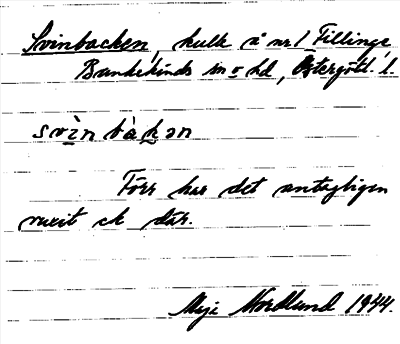 Svinbacken, kulle å nr 1 Fillinge,
Bankekinds sn o hd, Östergötl. l.
svìnbàkən
Förr har det antagligen
vuxit ek där.
Maja Nordlund 1944.